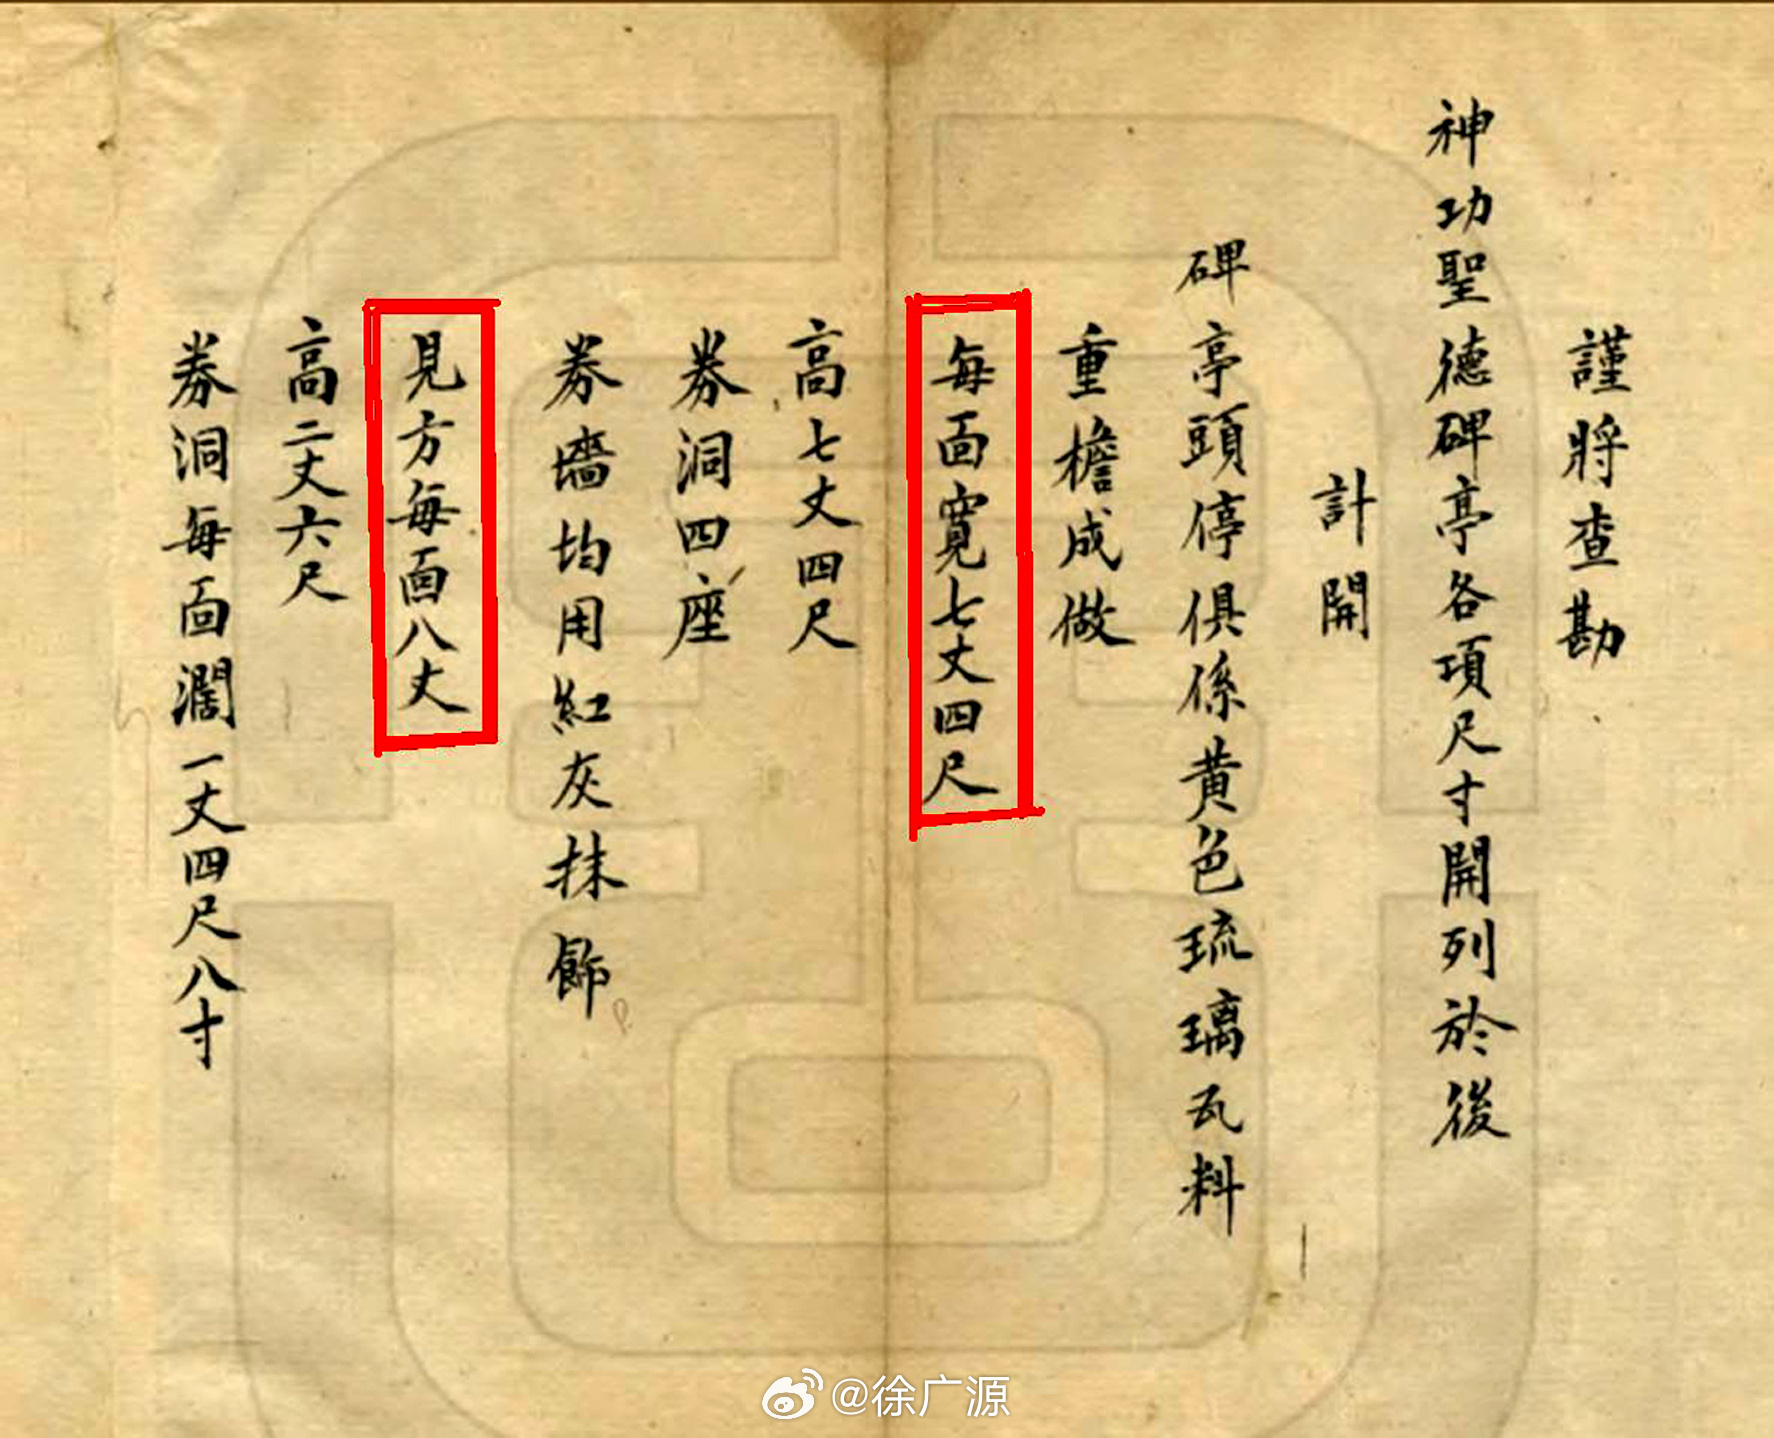 謹將查勘
神功聖德碑亭各項尺寸開列於後
計開
碑亭頭停俱係黃色琉璃瓦料
重檐成做
每面寬七丈四尺
高七丈四尺
券洞四座
券墻均用紅灰抹飾
見方每面八丈
高二丈六尺
券洞每面濶一丈四尺八寸
@徐广源